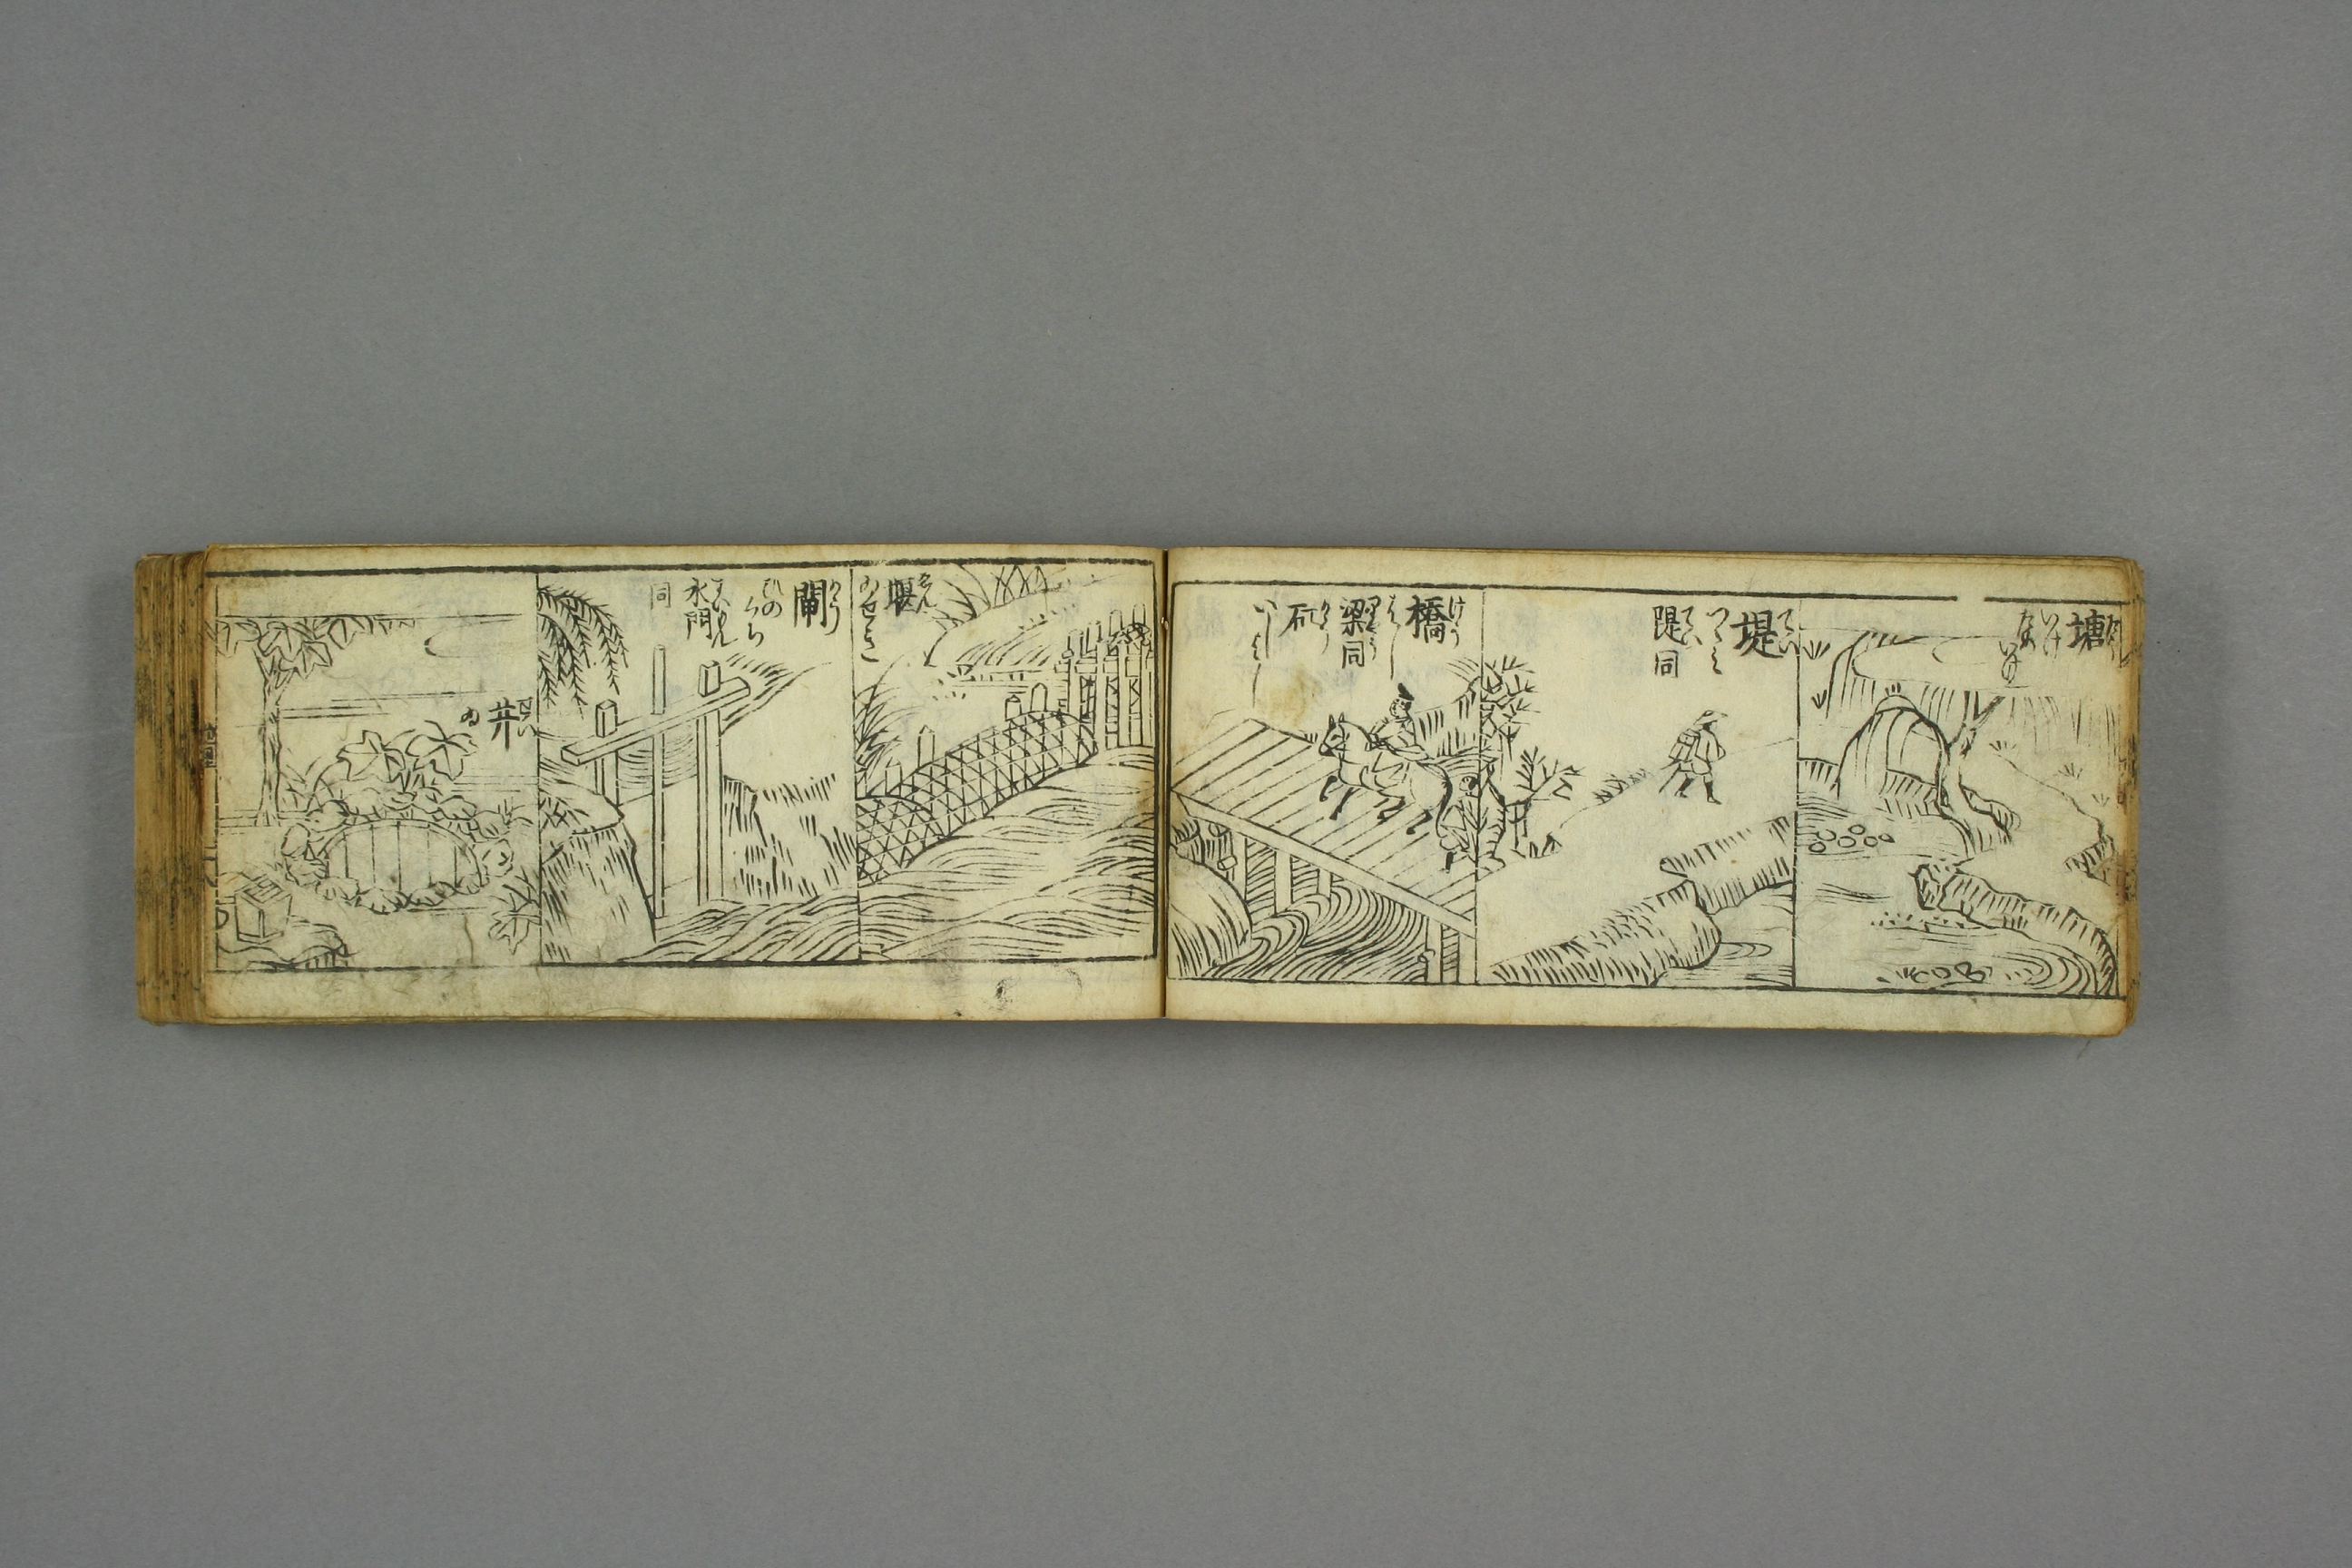 塘
いけ
堤
てい
つゝみ
隄同
てい
橋
けう
はし
梁同
りやう
矼
かう
いしばし
堰
ゑん
ゐせき
閘
かう
ひのくち
水門
すいもん
同
井
せい
ゐ